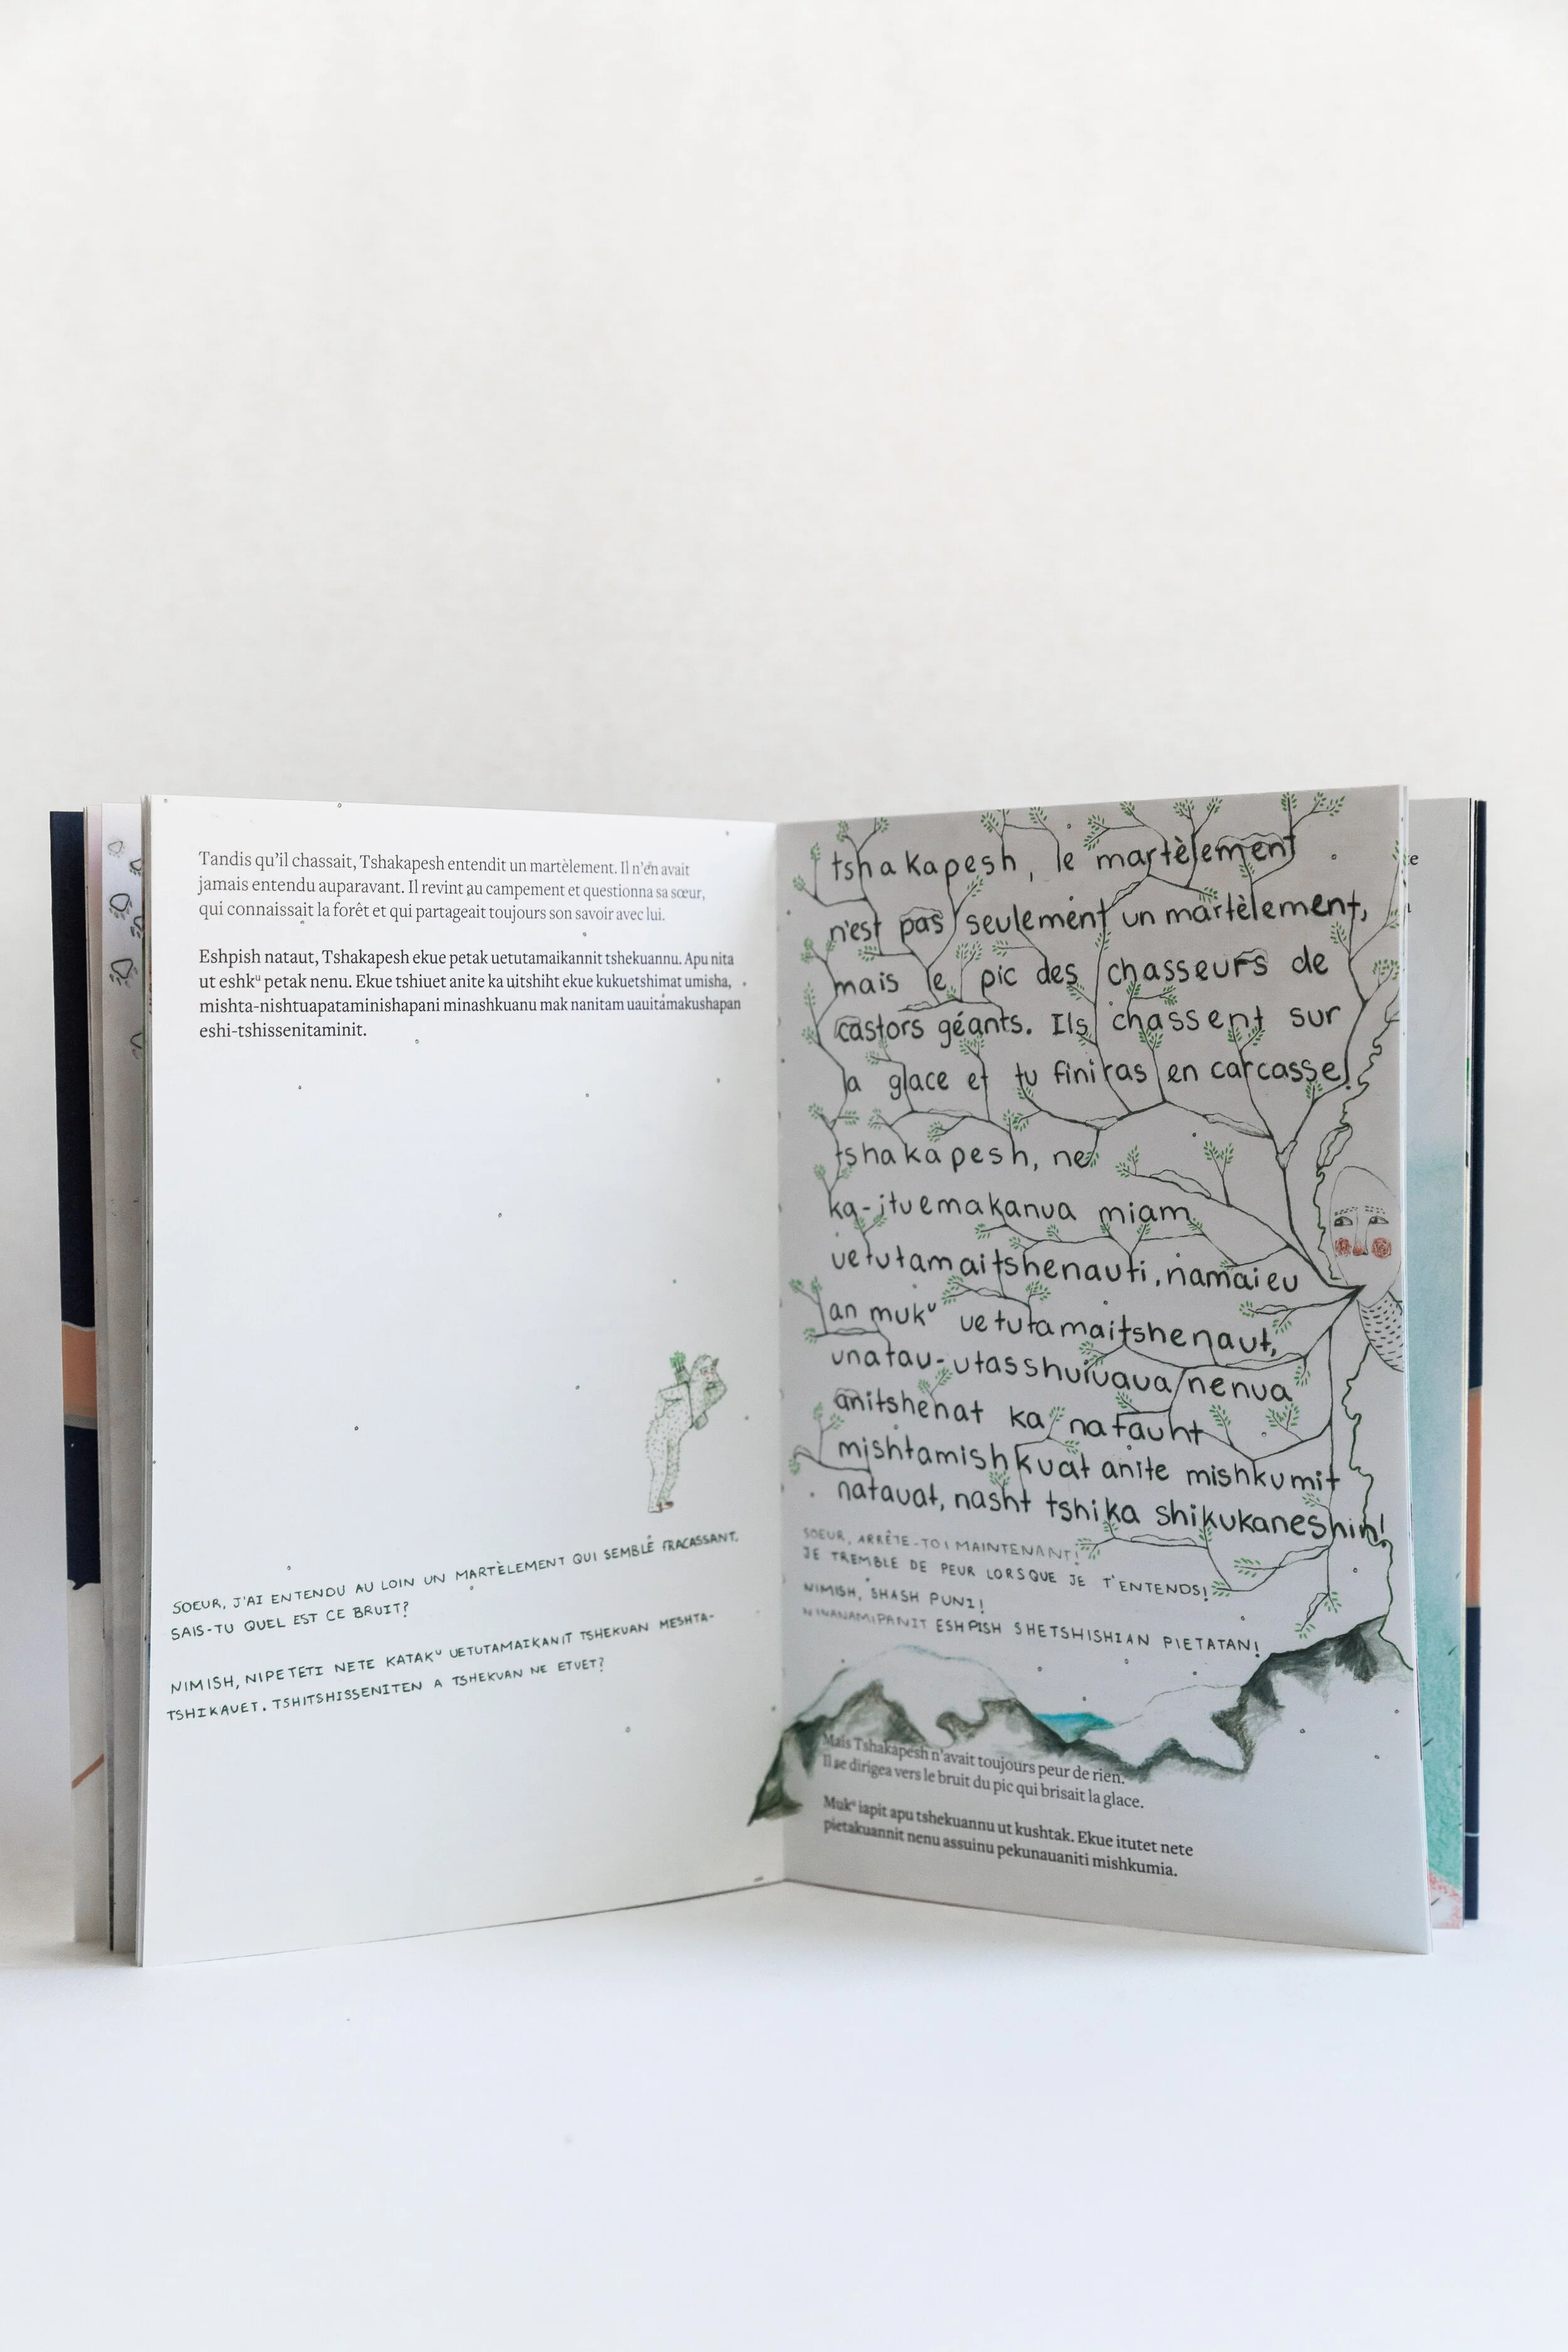 Tandis qu'il chassait, Tshakapesh entendit un martèlement. Il n'en avait
jamais entendu auparavant. Il revint au campement et questionna sa sœur,
qui connaissait la forêt et qui partageait toujours son savoir avec lui.
Eshpish nataut, Tshakapesh ekue petak uetutamaikannit tshekuannu. Apu nita
ut eshkᵘ petak nenu. Ekue tshiuet anite ka uitshiht ekue kukuetshimat umisha,
mishta-nishtuapataminishapani minashkuanu mak nanitam uauitamakushapan
eshi-tshissenitaminit.
SOEUR, J'AI ENTENDU AU LOIN UN MARTÈLEMENT QUI SEMBLE FRACASSANT.
SAIS-TU QUEL EST CE BRUIT?
NIMISH, NIPETETI NETE KATAKᵘ UETUTAMAIKANIT TSHEKUAN MESHTA-
TSHIKAUET. TSHITSHISSENITEN A TSHEKUAN NE ETUET?
tshakapesh, le martèlement
n'est pas seulement un martèlement,
mais le pic des chasseurs de
castors géants. Ils chassent sur
la glace et tu finiras en carcasse!
tshakapesh, ne
ka-ituemakanua miam
uetutamaitshenauti, namaieu
an mukᵘ uetutamaitshenaut,
unatau-utasshuiuaua nenua
anitshenat ka natauht
mishtamishkuat anite mishkumit
natauat, nasht tshika shikukaneshin!
SOEUR, ARRÊTE-TOI MAINTENANT!
JE TREMBLE DE PEUR LORSQUE JE T'ENTENDS!
NIMISH, SHASH PUNI!
NINANAMIPANIT ESHPISH SHETSHISHIAN PIETATAN!
Mais Tshakapesh n'avait toujours peur de rien.
Il se dirigea vers le bruit du pic qui brisait la glace.
Mukᵘ iapit apu tshekuannu ut kushtak. Ekue itutet nete
pietakuannit nenu assuinu pekunauaniti mishkumia.